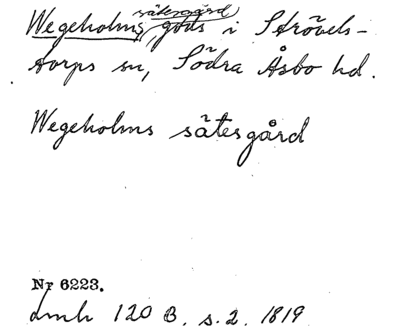 Wegeholms sätesgård gods i Strövels-
torps sn, Södra Åsbo hd.
Wegeholms sätesgård
Nr 6223.
lmk 120 B. s. 2. 1819